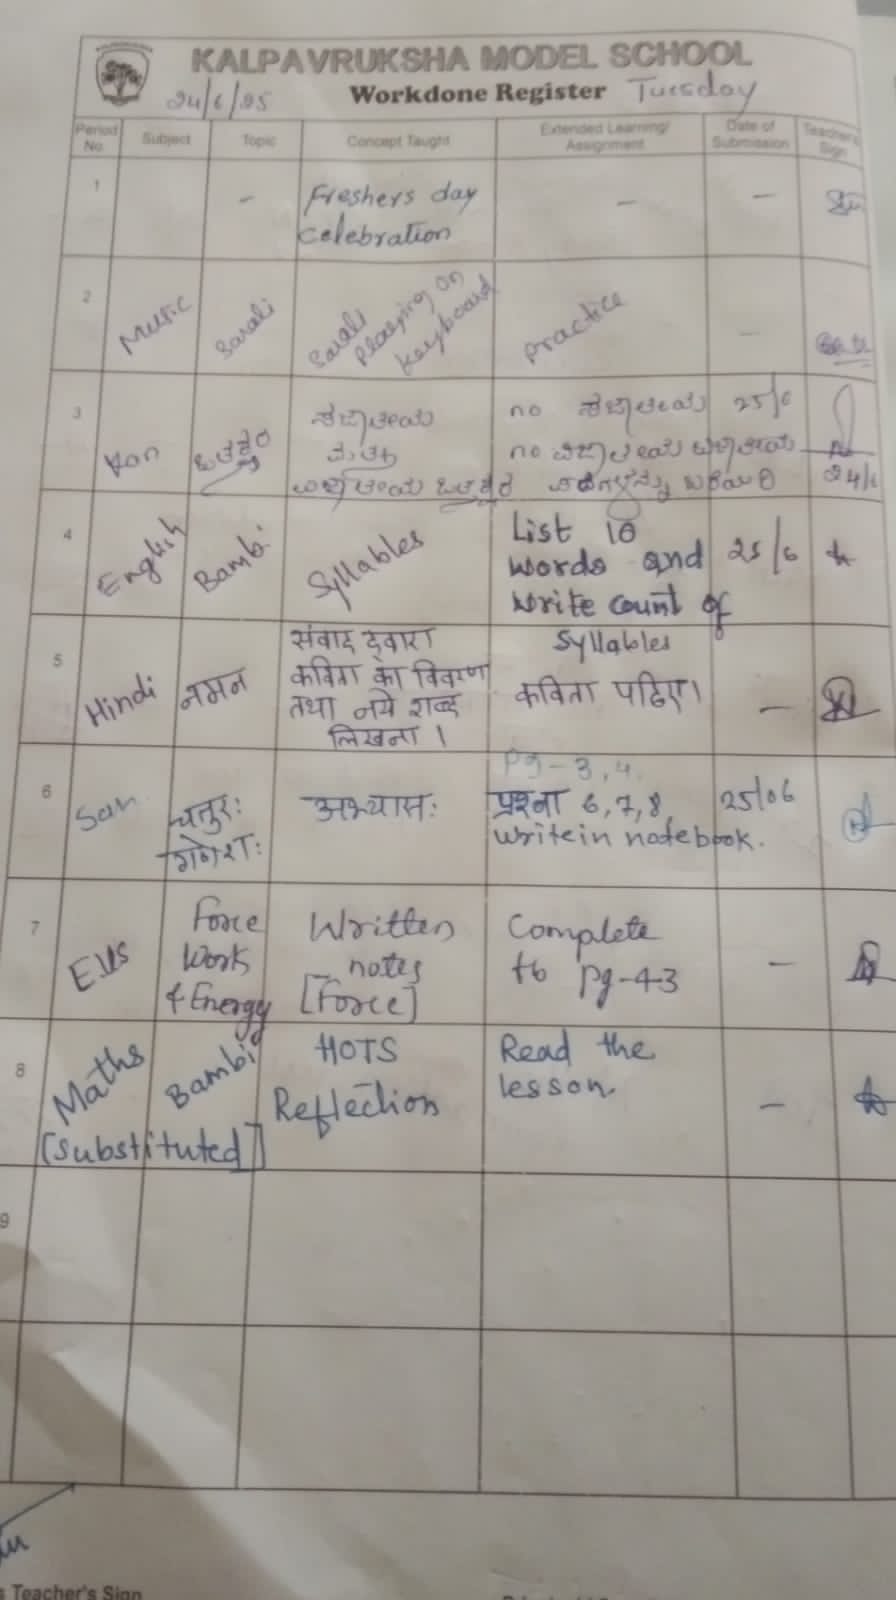 KALPAVRUKSHA MODEL SCHOOL
24/6/25 Workdone Register Tuesday
Period No. Subject Topic Concept Taught Extended Learning/ Assignment Date of Submission Teacher's Sign
1 - Freshers day - -
Celebration
2 Music Sarali Sarali playing on keyboard practice -
3 Kan ಒತ್ತಕ್ಷರ ಸಜಾತೀಯ no ಸಜಾತೀಯ 25/6
ಮತ್ತು no ವಿಜಾತೀಯ
ವಿಜಾತೀಯ ಒತ್ತಕ್ಷರ ಬರೆಯಿರಿ 24/6
4 English Bambi Syllables List 10 25/6
words and
write count of
Syllables
5 Hindi नमन संवाद द्वारा
कविता का विवरण कविता पढिए। -
तथा नये शब्द
लिखना।
Pg-3,4.
6 San चतुरः अभ्यासः प्रश्ना 6,7,8, 25/06
गणेशः write in notebook.
7 EVS Force Written Complete -
Work notes to pg-43
& Energy [Force]
8 Maths Bambi HOTS Read the
Reflection lesson. -
[Substituted]
9
Teacher's Sign